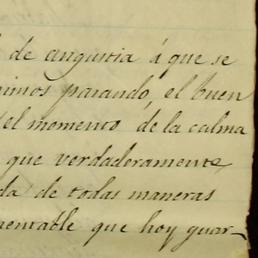 de angustia á que se
parando, el buen
el momento de la calma
que verdaderamente,
da de todas maneras
mentable que hoy guar-